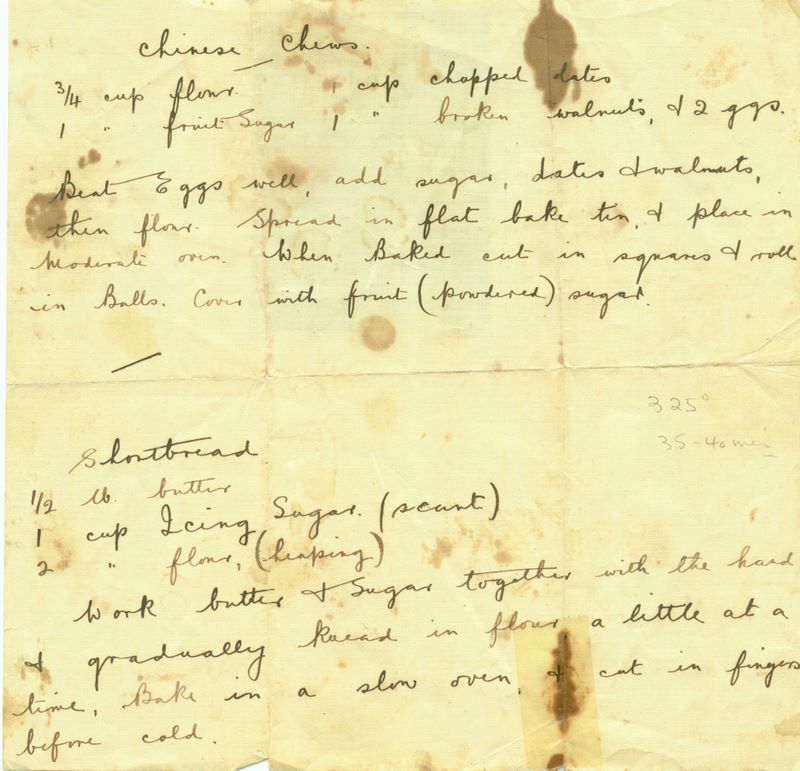 Chinese Chews.
3/4 cup flour. 1 cup chopped dates
1 " fruit Sugar 1 " broken walnuts, & 2 ggs.
Beat Eggs well, add sugar, dates & walnuts,
then flour. Spread in flat bake tin, & place in
Moderate oven. When Baked cut in squares & roll
in Balls. Cover with fruit (powdered) sugar.
325°
35-40 min
Shortbread.
1/2 lb. butter
1 cup Icing Sugar. (scant)
2 " flour, (heaping)
Work butter & Sugar together with the hand
& gradually knead in flour a little at a
time, Bake in a slow oven, & cut in fingers
before cold.